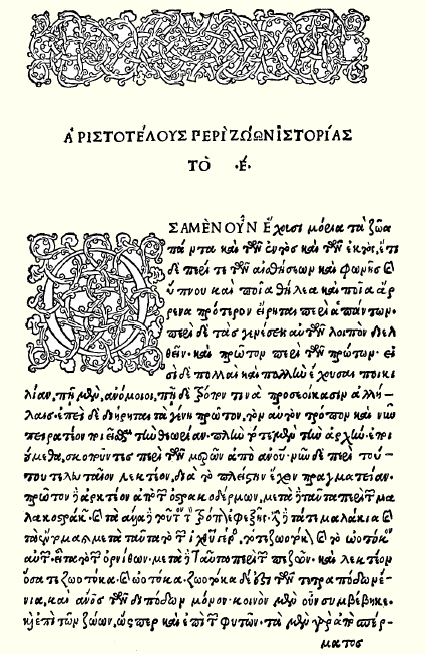 ἈΡΙΣΤΟΤΈΛΟΥΣ ΠΕΡΙ ΖΏΩΝ ἹΣΤΟΡΊΑΣ
ΤῸ ·Έ·
ΟΣΑ ΜῈΝ ΟΥ͂Ν Ἔχουσι μόρια τὰ ζῶα
πάντα καὶ τῶν ἐντὸς καὶ τῶν ἐκτὸς, ἔτι
δὲ περί τε τῶν αἰσθήσεων καὶ φωνῆς καὶ
ὕπνου καὶ ποῖα θήλεα καὶ ποῖα ἄρ
ρενα πρότερον εἴρηται περὶ ἁπάντων·
περὶ δὲ τὰς γενέσεις αὐτῶν λοιπὸν διελ
θεῖν· καὶ πρῶτον περὶ τῶν πρώτων· εἰ
σὶ δὲ πολλαὶ καὶ πολλὴν ἔχουσαι ποικι
λίαν, πῆ μὲν, ἀνόμοιοι, πῆ δὲ τρόπον τινὰ προσεοίκασιν ἀλλή-
λαις· ἐπεὶ δὲ διήρηται τὰ γένη πρῶτον, τὸν αὐτὸν τρόπον καὶ νῦν
πειρατέον ποιεῖσθαι τὴν θεωρίαν· πλὴν τότε μὲν τὴν ἀρχὴν ἐποι
ούμεθα, σκοποῦντες περὶ τῶν μερῶν ἀπὸ ἀνου· νῦν δὲ περὶ τού-
του τελευταῖον λεκτέον, διὰ τὸ πλείστην ἔχειν πραγματείαν·
πρῶτον δ' ἀρκτέον ἀπὸ τῶν ὀστρακοδέρμων, μετὰ δὲ ταῦτα περὶ τῶν μα
λακοστράκων· καὶ τὰ ἄλλα δὲ τοῦτον τὸν τρόπον ἐφεξῆς· ἔστι δὲ τά τε μαλάκια καὶ
τὰ ἔντομα· μετὰ ταῦτα τὸ τῶν ἰχθύων, τό τε ζωοτόκον καὶ τὸ ὠοτόκον
αὐτῶν· εἶτα τὸ τῶν ὀρνίθων· μετὰ δὲ ταῦτα περὶ τῶν πεζῶν· καὶ λεκτέον
ὅσα τε ζωοτόκα· καὶ ὠοτόκα· ζωοτόκα δέ ἐστι τῶν τετραπόδων ἔ-
νια, καὶ ἄνος τῶν διπόδων μόνον· κοινὸν μὲν οὖν συμβέβηκε
καὶ ἐπὶ τῶν ζώων, ὥσπερ καὶ ἐπὶ τῶν φυτῶν· τὰ μὲν γὰρ ἀπὸ σπέρ-
ματος